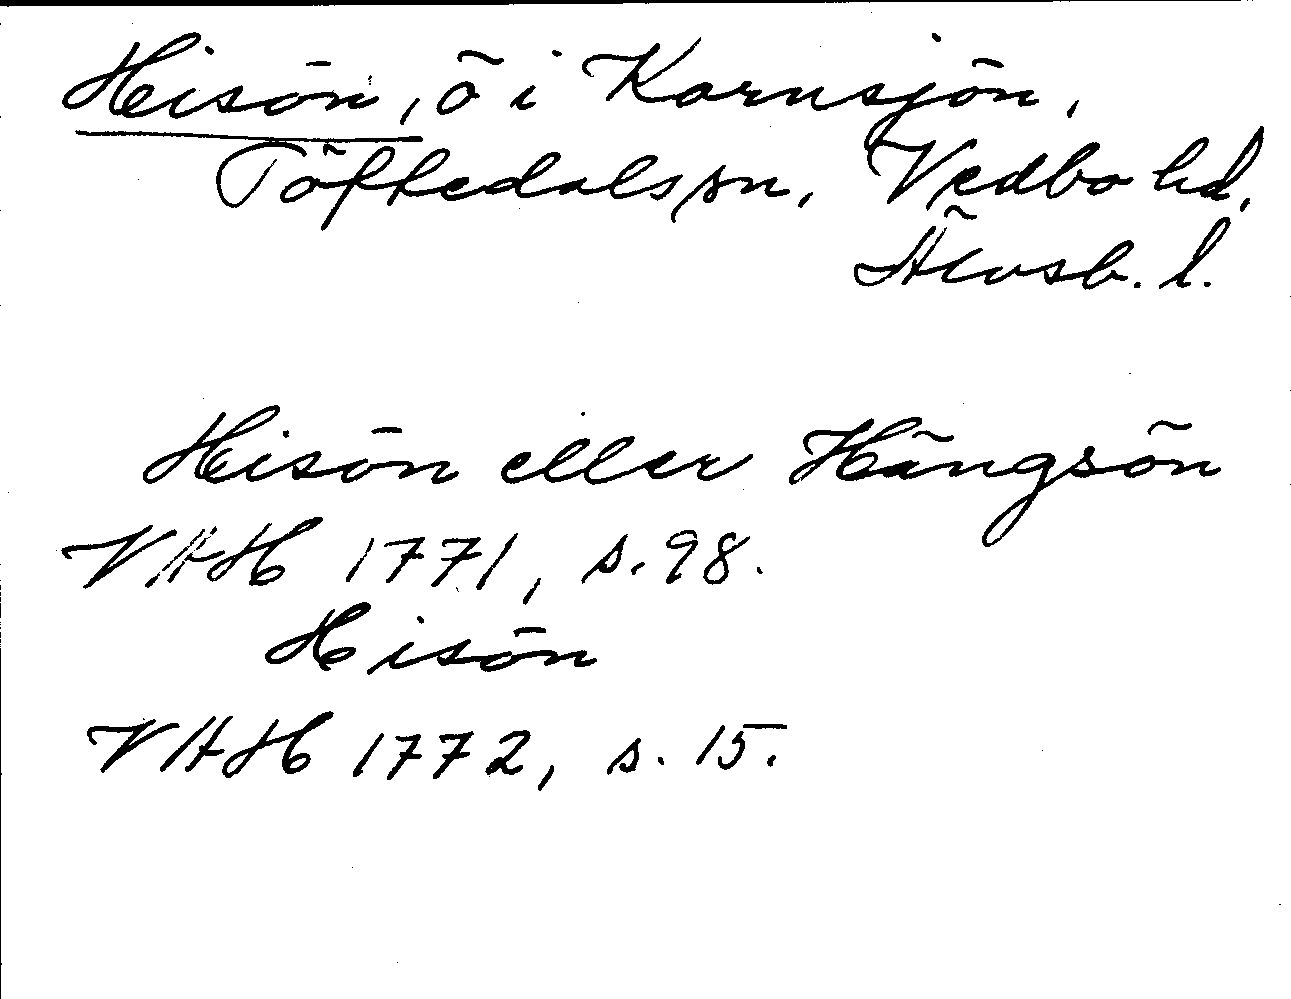 Hisön, ö i Kornsjön,
Töftedals sn, Vedbo hd,
Älvsb. l.
Hisön eller Hängsön
VAH 1771, s. 98.
Hisön
VAH 1772, s. 15.